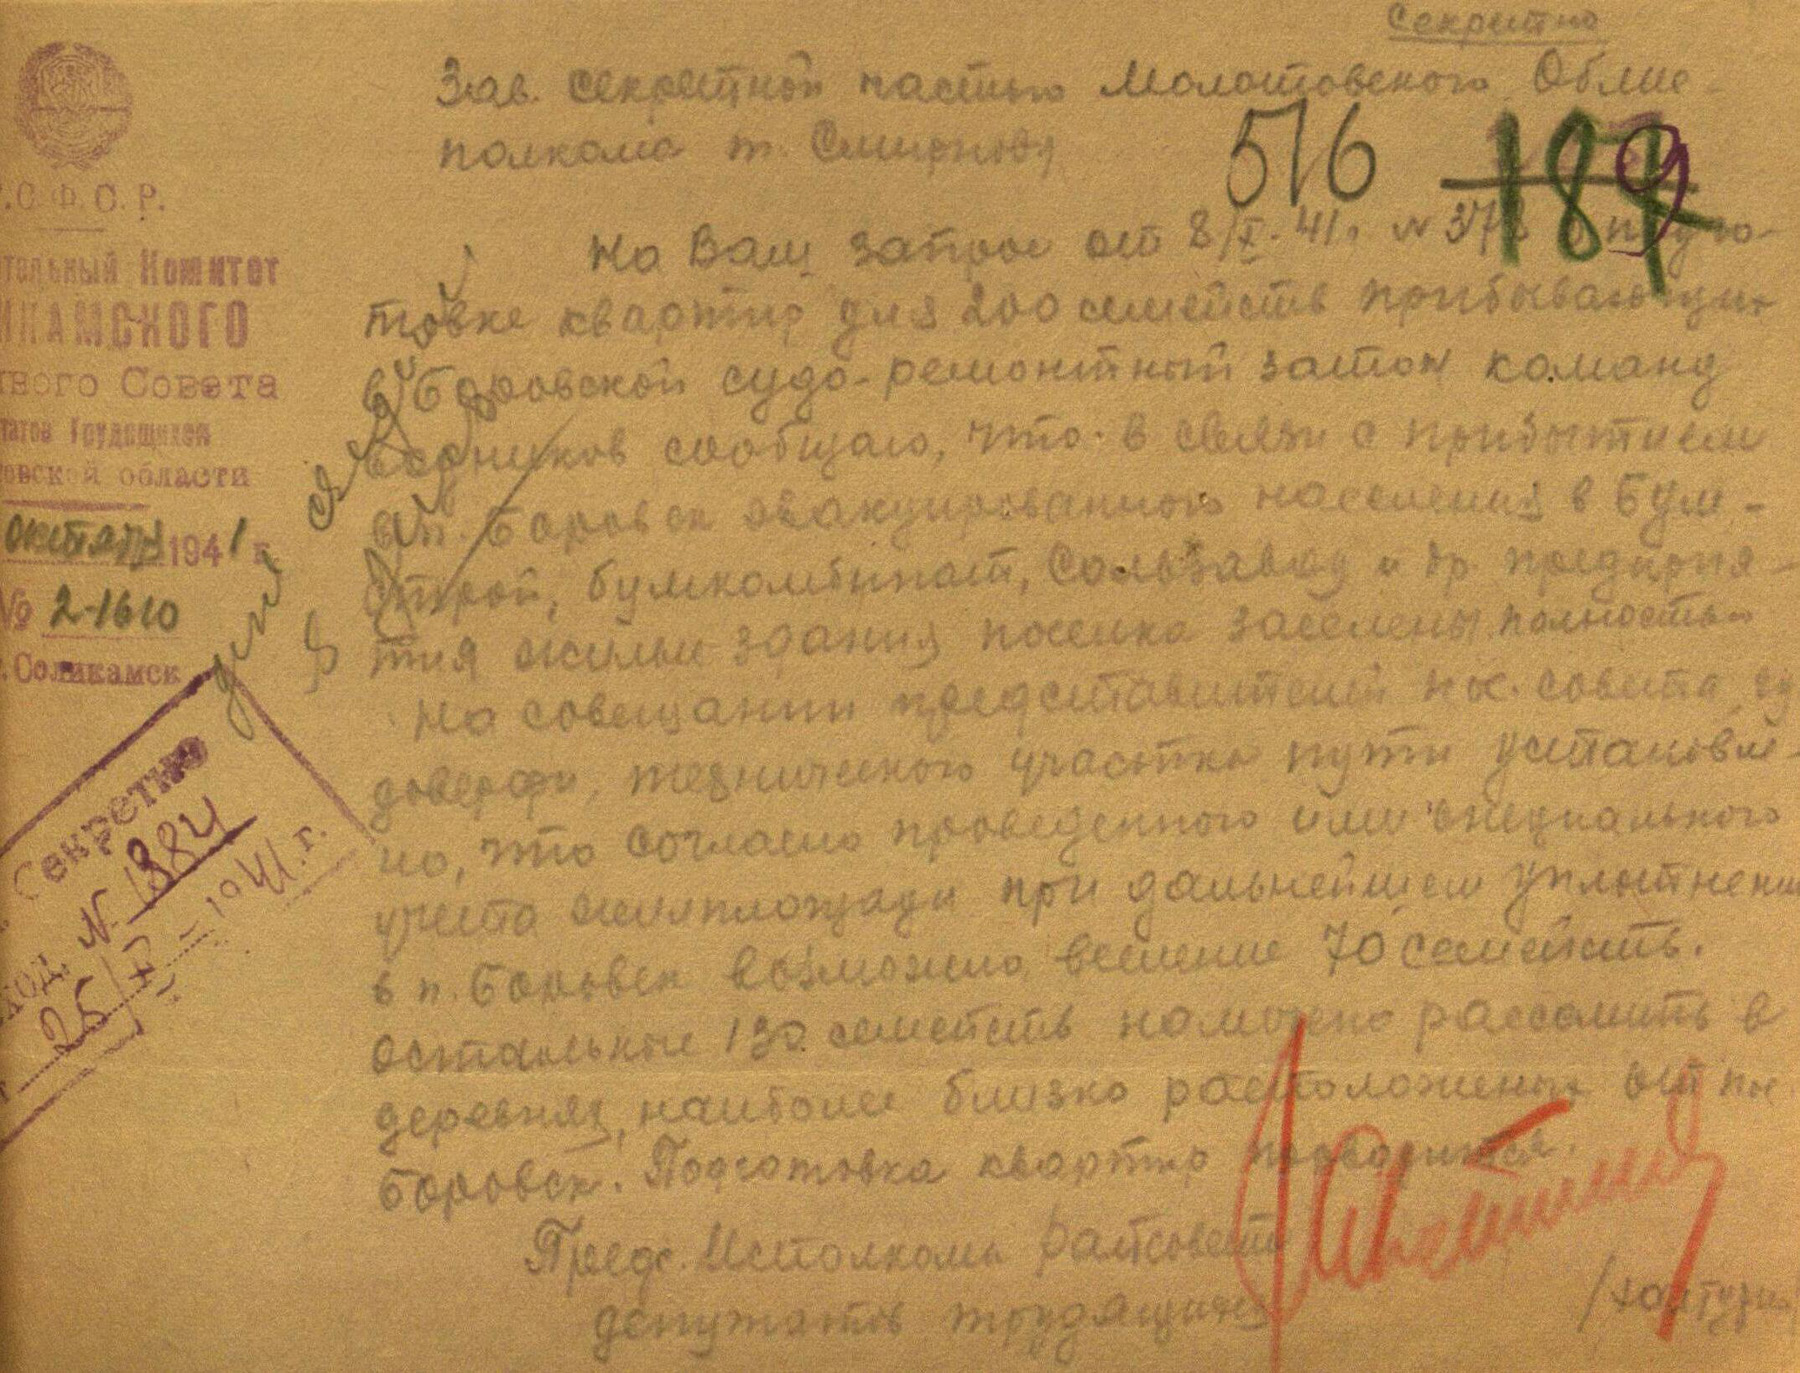 Секретно
Зав. секретной частью Молотовского Облис-
полкома т. Смирнову
516
189
С.Ф.С.Р.
тельный Комитет
ИКАМСКОГО
Совета
Трудящихся
овской области
октября 1941 г.
№ 2-1610
г. Соликамск
Секретно
ход. № 1884
25/X - 1941 г.
На Ваш запрос от 8/X-41г. №378 о подго-
товке квартир для 200 семейств прибывающих
в Боровской судо-ремонтный затон команд
сообщаю, что в связи с прибытием
в п. Боровск эвакуированного населения в Бум-
строй, бумкомбинат, Сользавод и др. предприя-
тия жилые здания поселка заселены полностью
На совещании представителей пос. совета, су
доверфи, технического участка пути установле-
но, что согласно проведенного ими специального
учета жилплощади при дальнейшем уплотнении
в п. Боровск возможно вселение 70 семейств.
Остальные 130 семейств намечено расселить в
деревнях, наиболее близко расположенных от пос
Боровск. Подготовка квартир производится.
Пред. Исполкома райсовета
депутатов трудящихся